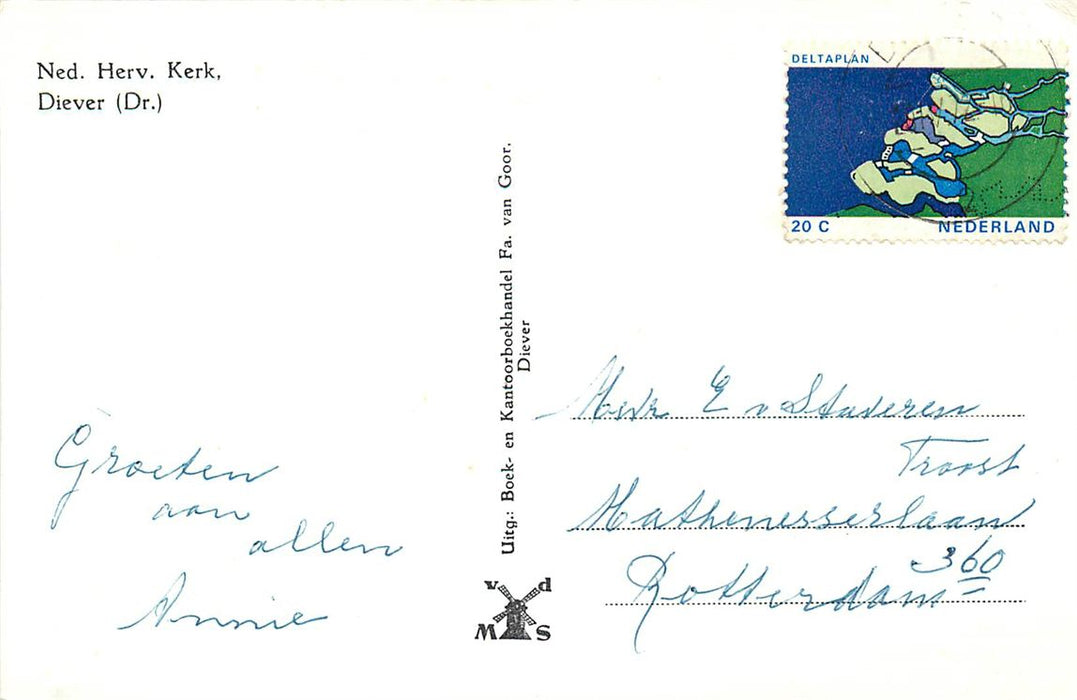 Ned. Herv. Kerk,
Diever (Dr.)
DELTAPLAN
20 C NEDERLAND
Uitg.: Boek- en Kantoorboekhandel Fa. van Goor.
Diever
v d
M S
Groeten
aan
allen
Annie
Mevr E v Staveren
Troost
Mathenesserlaan
360
Rotterdam